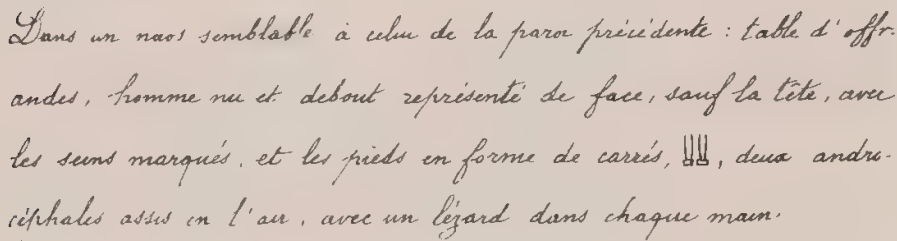 Dans un naos semblable à celui de la paroi précédente : table d'offr-
andes, homme nu et debout représenté de face, sauf la tête, avec
les seins marqués, et les pieds en forme de carrés, , deux andro-
céphales assis en l'air, avec un lézard dans chaque main.